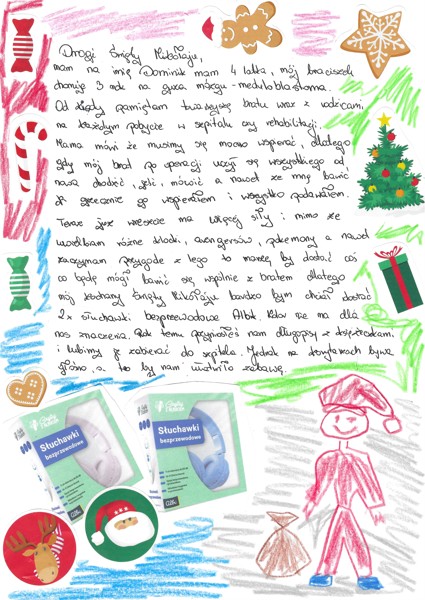 Drogi Święty Mikołaju,
mam na imię Dominik mam 4 latka, mój braciszek
choruje 3 rok na guza mózgu - medulloblastoma.
Od kiedy pamiętam towarzyszę bratu wraz z rodzicami,
na każdym pobycie w szpitalu czy rehabilitacji.
Mama mówi że musimy się mocno wspierać, dlatego
gdy mój brat po operacji uczył się wszystkiego od
nowa chodzić, jeść, mówić a nawet ze mną bawić
ja grzecznie go wspierałem i wszystko podawałem.
Teraz już wreszcie ma więcej siły i mimo że
uwielbiam różne klocki, avengersów, pokemony a nawet
zaczynam przygodę z lego to marzę by dostać coś
co będę mógł bawić się wspólnie z bratem dlatego
mój kochany Święty Mikołaju bardzo bym chciał dostać
2x słuchawki bezprzewodowe Albik. Kolor nie ma dla
nas znaczenia. Rok temu przyniosłeś nam długopisy z książeczkami
i lubimy je zabierać do szpitala. Jednak na korytarzach bywa
głośno, a to by nam ułatwiło zabawę.
Czytaj z Albikiem
Słuchawki
bezprzewodowe
Albik
Słuchawki
bezprzewodowe
Albik